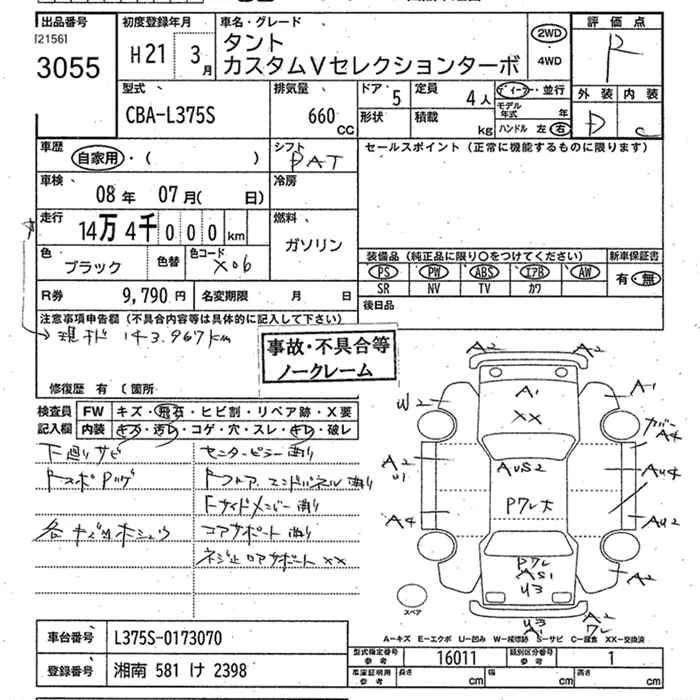 出品番号
[2156]
3055
初度登録年月
H21 3月
車名・グレード
タント
カスタムVセレクションターボ
2WD
・
4WD
評価点
R
外装 内装
D C
型式
CBA-L375S
排気量
660 CC
ドア 5
定員 4人
形状
積載 kg
ディーラー・並行
モデル年式 年
ハンドル 左 右
車歴
自家用・( )
シフト
PAT
セールスポイント(正常に機能するものに限ります)
車検
08年 07月( 日)
冷房
走行
14万4千000km
燃料
ガソリン
色
ブラック
色替
色コード
X06
装備品(純正品に限り○をつけてください)
新車保証書
PS PW ABS エアB AW
SR NV TV カワ
有・無
R券 9,790円
名変期限 月 日
後日品
注意事項申告欄(不具合内容等は具体的に記入して下さい)
現状 143.967km
事故・不具合等
ノークレーム
修復歴 有 (箇所
検査員
記入欄
FW キズ・飛石・ヒビ割・リペア跡・X要
内装 キズ・汚レ・コゲ・穴・スレ・キレ・破レ
下廻りサビ
センターピラー曲り
各キズ凹ホシュウ
コアサポート曲り
ネジ止ロアサポート XX
A2 A2
A1
A-1
XX
U2
カバー
A4
A2
U1
AUS2
AU4
P7レ大
A4
AU2
P7レ
AS1
U3
A2
A2
U3
A2
ワレ
スペア
A-キズ E-エクボ U-凹み W-補修跡 S-サビ C-腐食 XX-交換済
車台番号 L375S-0173070
登録番号 湘南 581 け 2398
型式指定番号
参考
16011
類別区分番号
参考
1
車庫証明用
参考
長さ cm 幅 cm 高さ cm